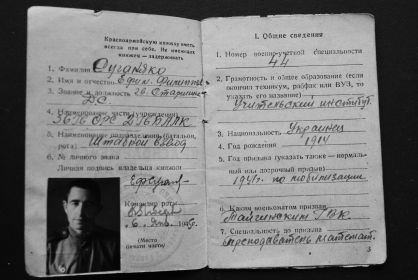 Красноармейскую книжку иметь
всегда при себе. Не имеющих
книжек — задерживать
1. Фамилия Суганяко
2. Имя и отчество Ефим
3. Звание и должность гв. Старшина
4. Наименование части (учреждения)
5. Наименование подразделения (батальон,
рота) Штабной взвод
6. № личного знака
Личная подпись владельца книжки
Командир роты
(Место
печати части)
I. Общие сведения
1. Номер военно-учетной специальности
44
2. Грамотность и общее образование (если
окончил техникум, рабфак или ВУЗ, то
указать его название)
Учительский институт.
3. Национальность Украинец
4. Год рождения 1914
5. Год призыва (указать также — нормаль-
ный или досрочный призыв)
1941 г. по мобилизации
6. Каким военкоматом призван
Тайгинским ГВК
7. Специальность до призыва
преподаватель математ.
3